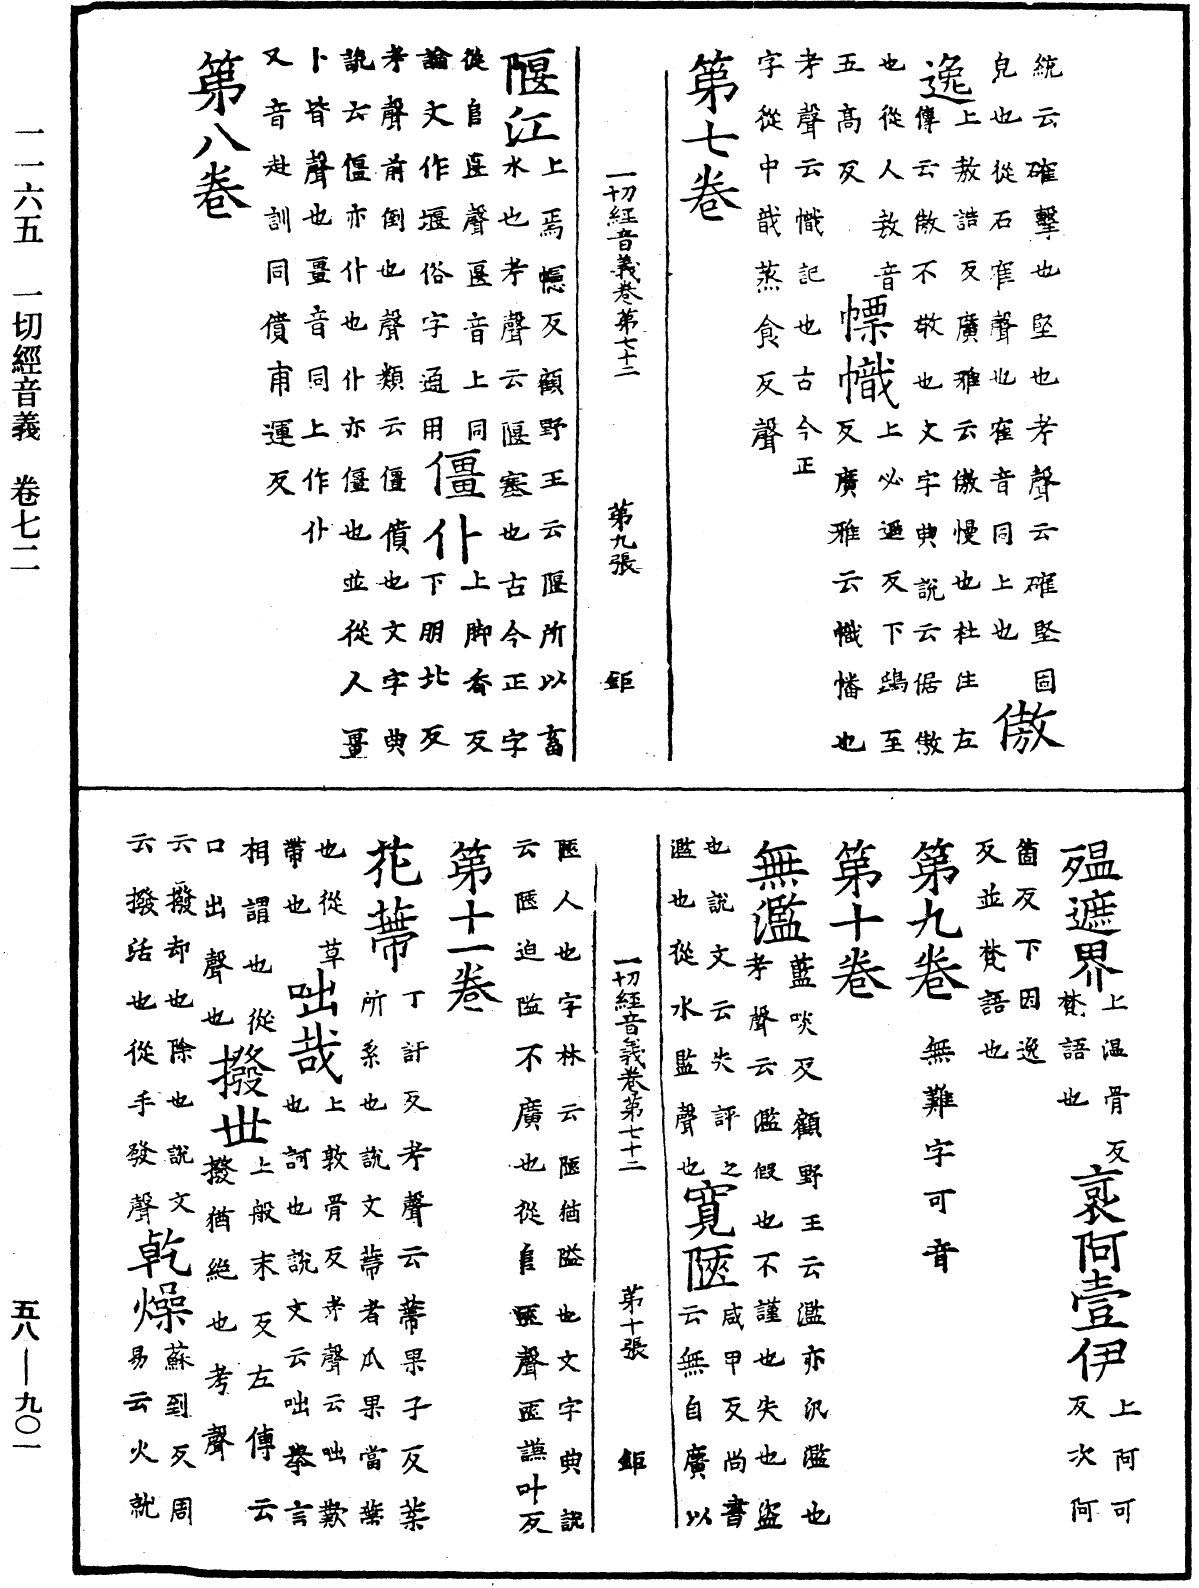 統云確擊也堅也考聲云確堅固
皃也從石隺聲也隺音同上也 傲
逸上敖誥反廣雅云傲慢也杜注左
傳云傲不敬也文字典說云倨傲
也從人敖音 幖幟上必遥反下鴟至
五高反 反廣雅云幟幡也
考聲云幟記也古今正
字從巾哉蒸食反聲
第七卷
一切經音義卷第七十二 第九張 鉅
隁江上焉幰反顧野王云隁所以畜
水也考聲云隁塞也古今正字
從𨸏匽聲匽音上同 僵仆上脚香反
論文作堰俗字通用 下朋北反
考聲前倒也聲類云僵僨也文字典
說云僵亦仆也仆亦僵也並從人畺
卜皆聲也畺音同上作仆
又音赴訓同僨甫運反
第八卷
殟遮界上温骨反 哀阿壹伊上阿可
梵語也 反次阿
箇反下因逸
反並梵語也
第九卷 無難字可音
第十卷
無濫藍啖反顧野王云濫亦汎濫也
考聲云濫假也不謹也失也盜
也說文云失評之 寬陿咸甲反尚書
濫也從水監聲也 云無自廣以
一切經音義卷第七十二 第十張 鉅
陿人也字林云陿猶隘也文字典說
云陿迫隘不廣也從𨸏匧聲匧謙叶反
第十一卷
花蔕丁計反考聲云蔕果子反葉
所系也說文蔕者瓜果當葉
也從草 咄哉上敦骨反考聲云咄歎
帶也 也訶也說文云咄擧言
相謂也從 撥丗上般末反左傳云
口出聲也 撥猶絶也考聲
云撥却也除也說文 乾燥蘇到反周
云撥活也從手發聲 易云火就
一一六五 一切經音義 卷七二
五八—九〇一